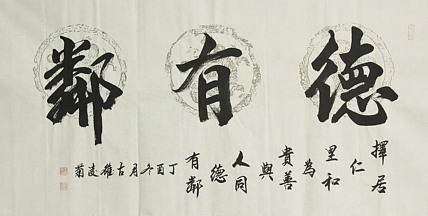 德有鄰
擇居
仁
里和
為
貴善
與
人同
德
有鄰
丁酉冬月古雄凌菊